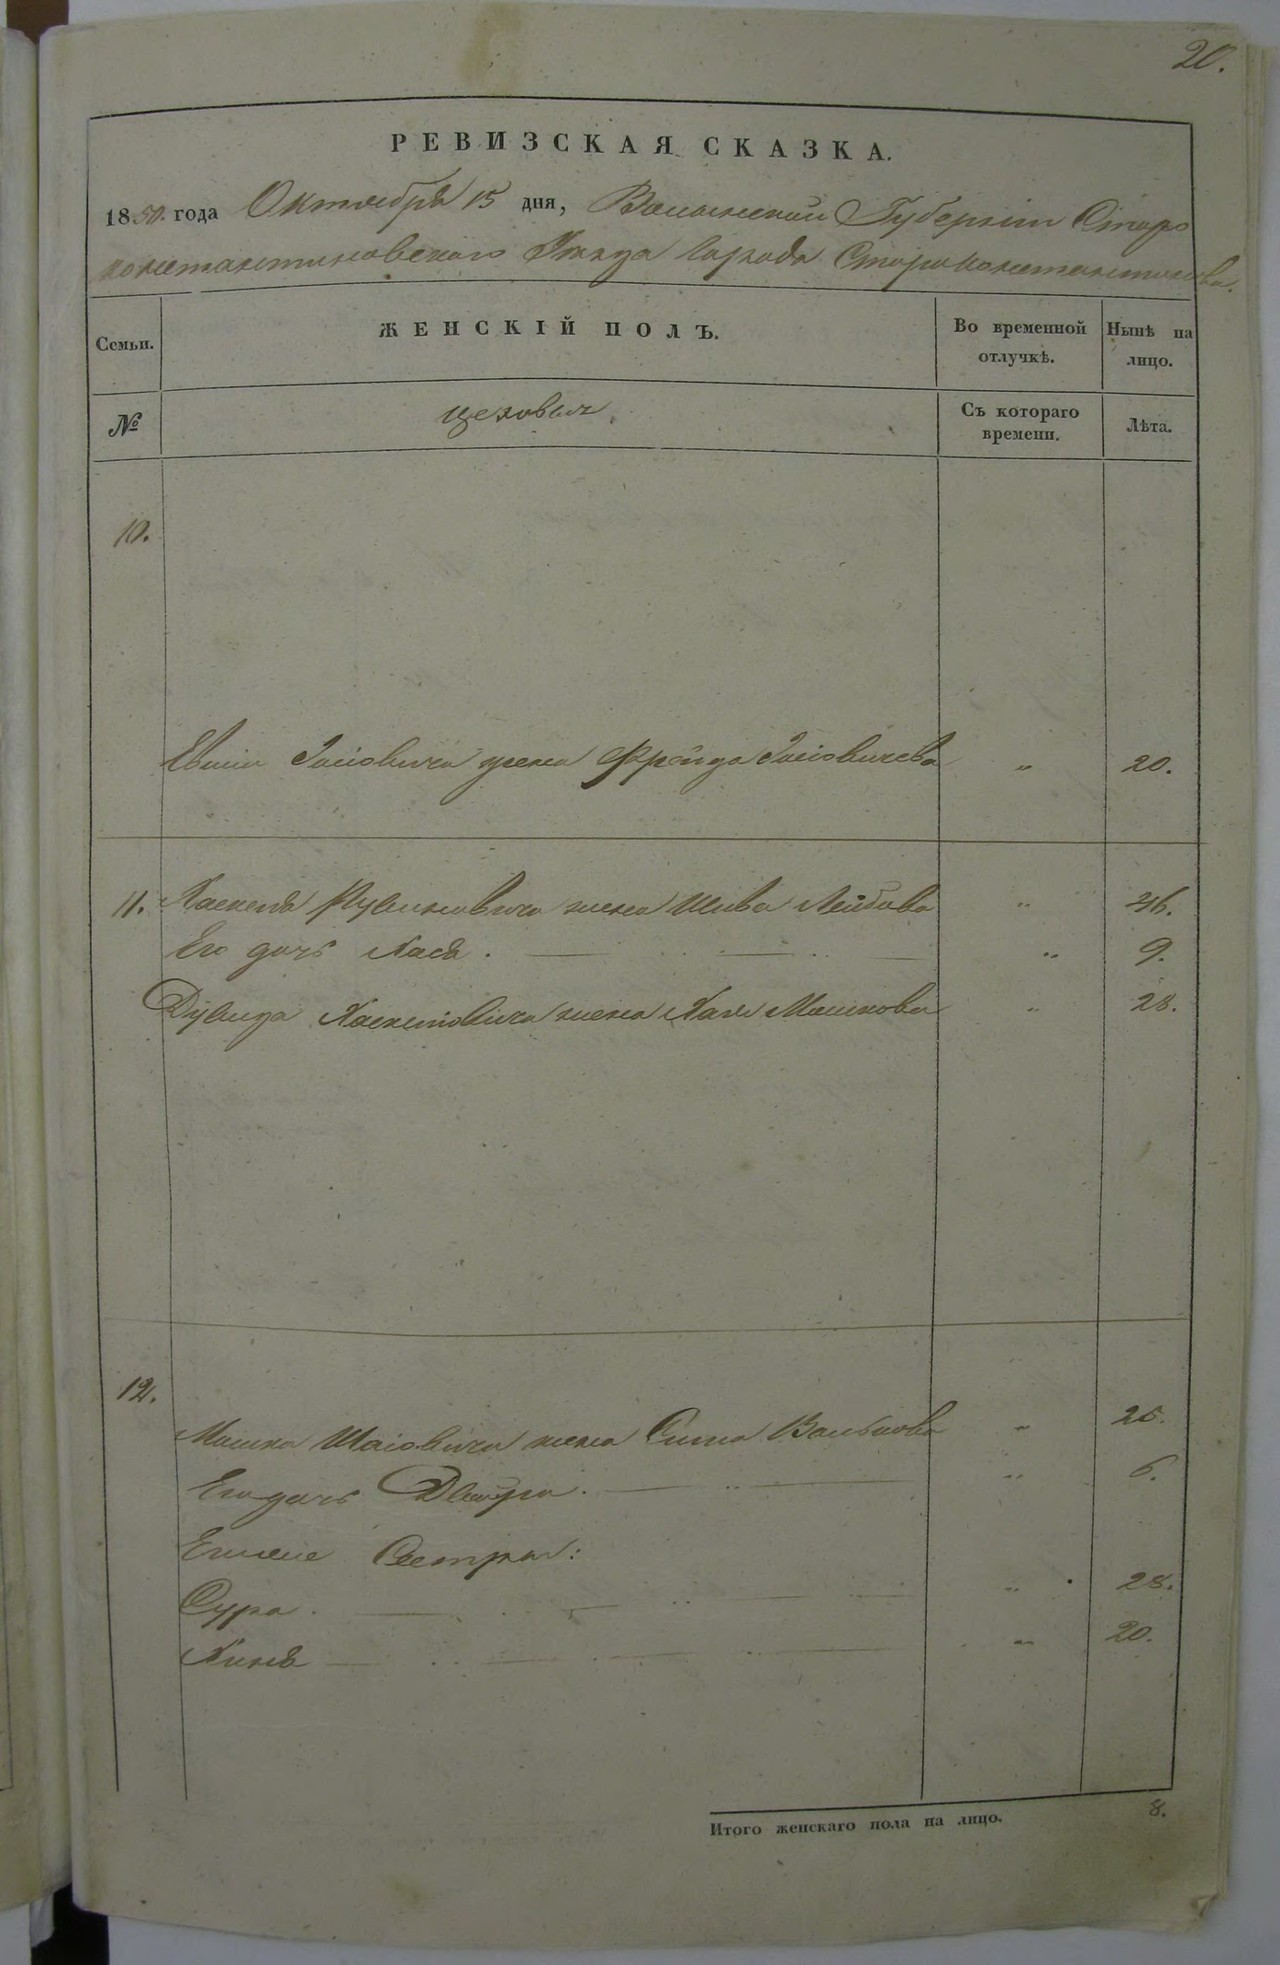 20.
РЕВИЗСКАЯ СКАЗКА.
1850. года Октября 15 дня, Волынской Губернии Старо
константиновского Уезда Города Староконстантинова.
Семьи. ЖЕНСКІЙ ПОЛЪ. Во временной отлучкѣ. Нынѣ на лицо.
№ цеховых Съ котораго времени. Лѣта.
10.
жена Фрейда Иосіовичева " 20.
11. Хаскеля Рувиновича жена Шива Лейбова " 46.
Его дочь Хася. " 9.
Дувида Хаскелiовича жена Хая Машкова " 28.
12.
Машка Шаiовича жена Сима Волькова " 26.
Его дочь Двойра. " 6.
Сестры:
Сура. " 28.
Хиня " 20.
Итого женскаго пола на лицо. 8.